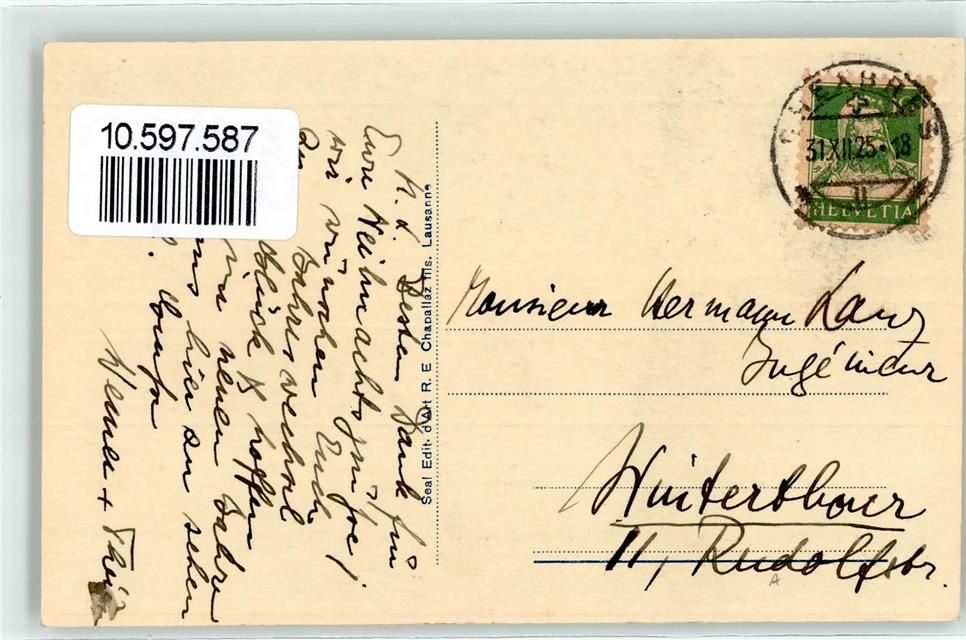 10.597.587
M. L. Besten Dank für
Eure Weihnachtsgrüsse;
wir wünschen Euch
zum Jahreswechsel
Glück & hoffen
im neuen Jahre
uns hier zu sehen
Werner +
Seal Edit. d'Art R. E. Chapallaz fils. Lausanne
CHEXBRES
31.XII.25-18
HELVETIA
Monsieur Hermann Lanz
Ingénieur
Winterthour
11, Rudolfstr.
A